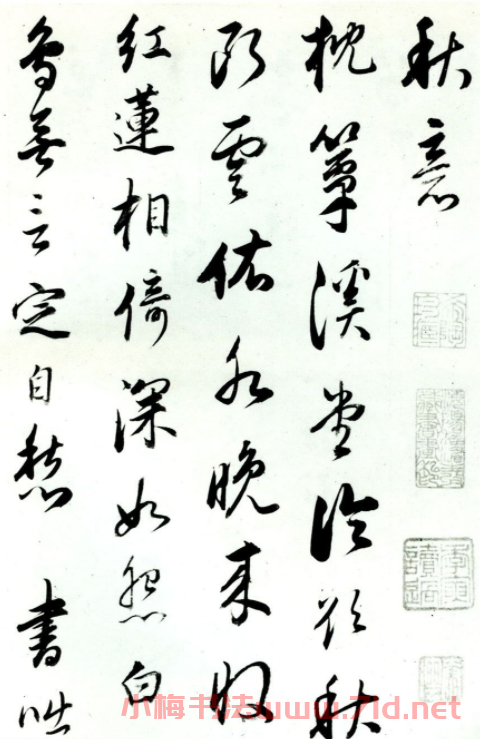 秋意
枕簟溪堂冷欲秋
斷雲依水晚來收
紅蓮相倚深如怨白
鳥無言定自愁 書咄
小梅书法www.71d.net